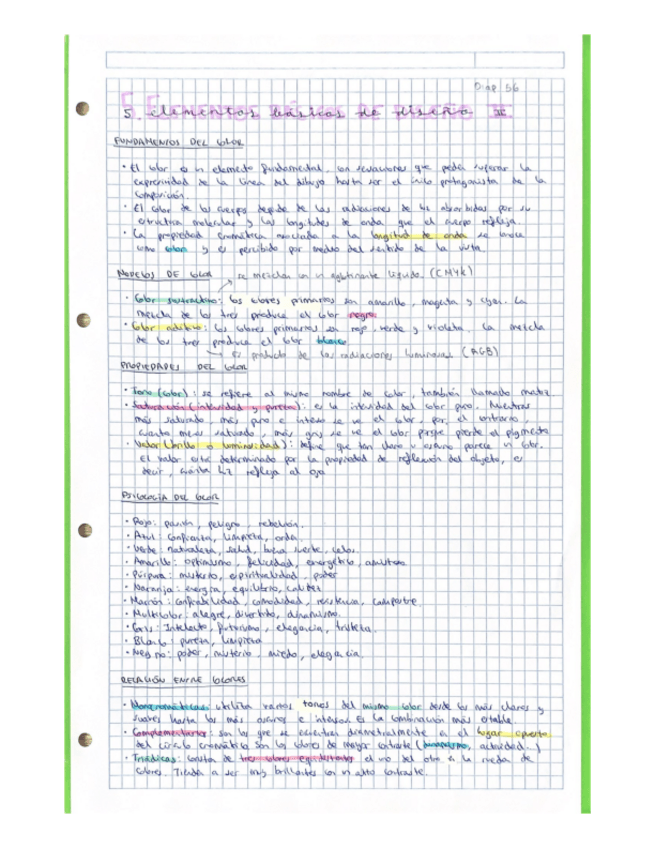 Diap 56
5. Elementos básicos de diseño II
FUNDAMENTOS DEL COLOR
• El color es un elemento fundamental, con sensaciones que puede superar la
expresividad de la línea del dibujo hasta ser el único protagonista de la
composición.
• El color de los cuerpos depende de las radiaciones de luz absorbidas por su
estructura molecular y las longitudes de onda que el cuerpo refleja.
• La propiedad cromática asociada a la longitud de onda se conoce
como color y es percibido por medio del sentido de la vista.
MODELOS DE COLOR
se mezclan con un aglutinante líquido. (CMYK)
• Color sustractivo: los colores primarios son amarillo, magenta y cyan. La
mezcla de los tres produce el color negro.
• Color aditivo: los colores primarios son rojo, verde y violeta. La mezcla
de los tres produce el color blanco.
es producto de las radiaciones luminosas (RGB)
PROPIEDADES DEL COLOR
• Tono (color): se refiere al mismo nombre de color, también llamado matiz.
• Saturación (intensidad y pureza): es la intensidad del color puro. Mientras
más saturado más puro e intenso se ve el color, por el contrario
cuanto menos saturado, más gris se ve el color porque pierde el pigmento
• Valor (brillo o luminosidad): define que tan claro u oscuro parece un color.
El valor está determinado por la propiedad de reflexión del objeto, es
decir, cuánta luz refleja al ojo
PSICOLOGÍA DEL COLOR
• Rojo: pasión, peligro, rebelión.
• Azul: confianza, limpieza, orden.
• Verde: naturaleza, salud, buena suerte, celos.
• Amarillo: optimismo, felicidad, energético, amistoso.
• Púrpura: misterio, espiritualidad, poder
• Naranja: energía, equilibrio, calidez
• Marrón: confiabilidad, comodidad, resistencia, campestre.
• Multicolor: alegre, divertido, dinamismo.
• Gris: Intelecto, futurismo, elegancia, tristeza.
• Blanco: pureza, limpieza
• Negro: poder, misterio, miedo, elegancia.
RELACIÓN ENTRE COLORES
• Monocromáticas: utiliza varios tonos del mismo color desde los más claros y
suaves hasta los más oscuros e intensos. Es la combinación más estable.
• Complementarios: son los que se encuentran diametralmente en el lugar opuesto
del círculo cromático. Son los colores de mayor contraste (dinamismo, actividad...)
• Triádicas: consta de tres colores equidistantes el uno del otro en la rueda de
colores. Tienden a ser muy brillantes con un alto contraste.